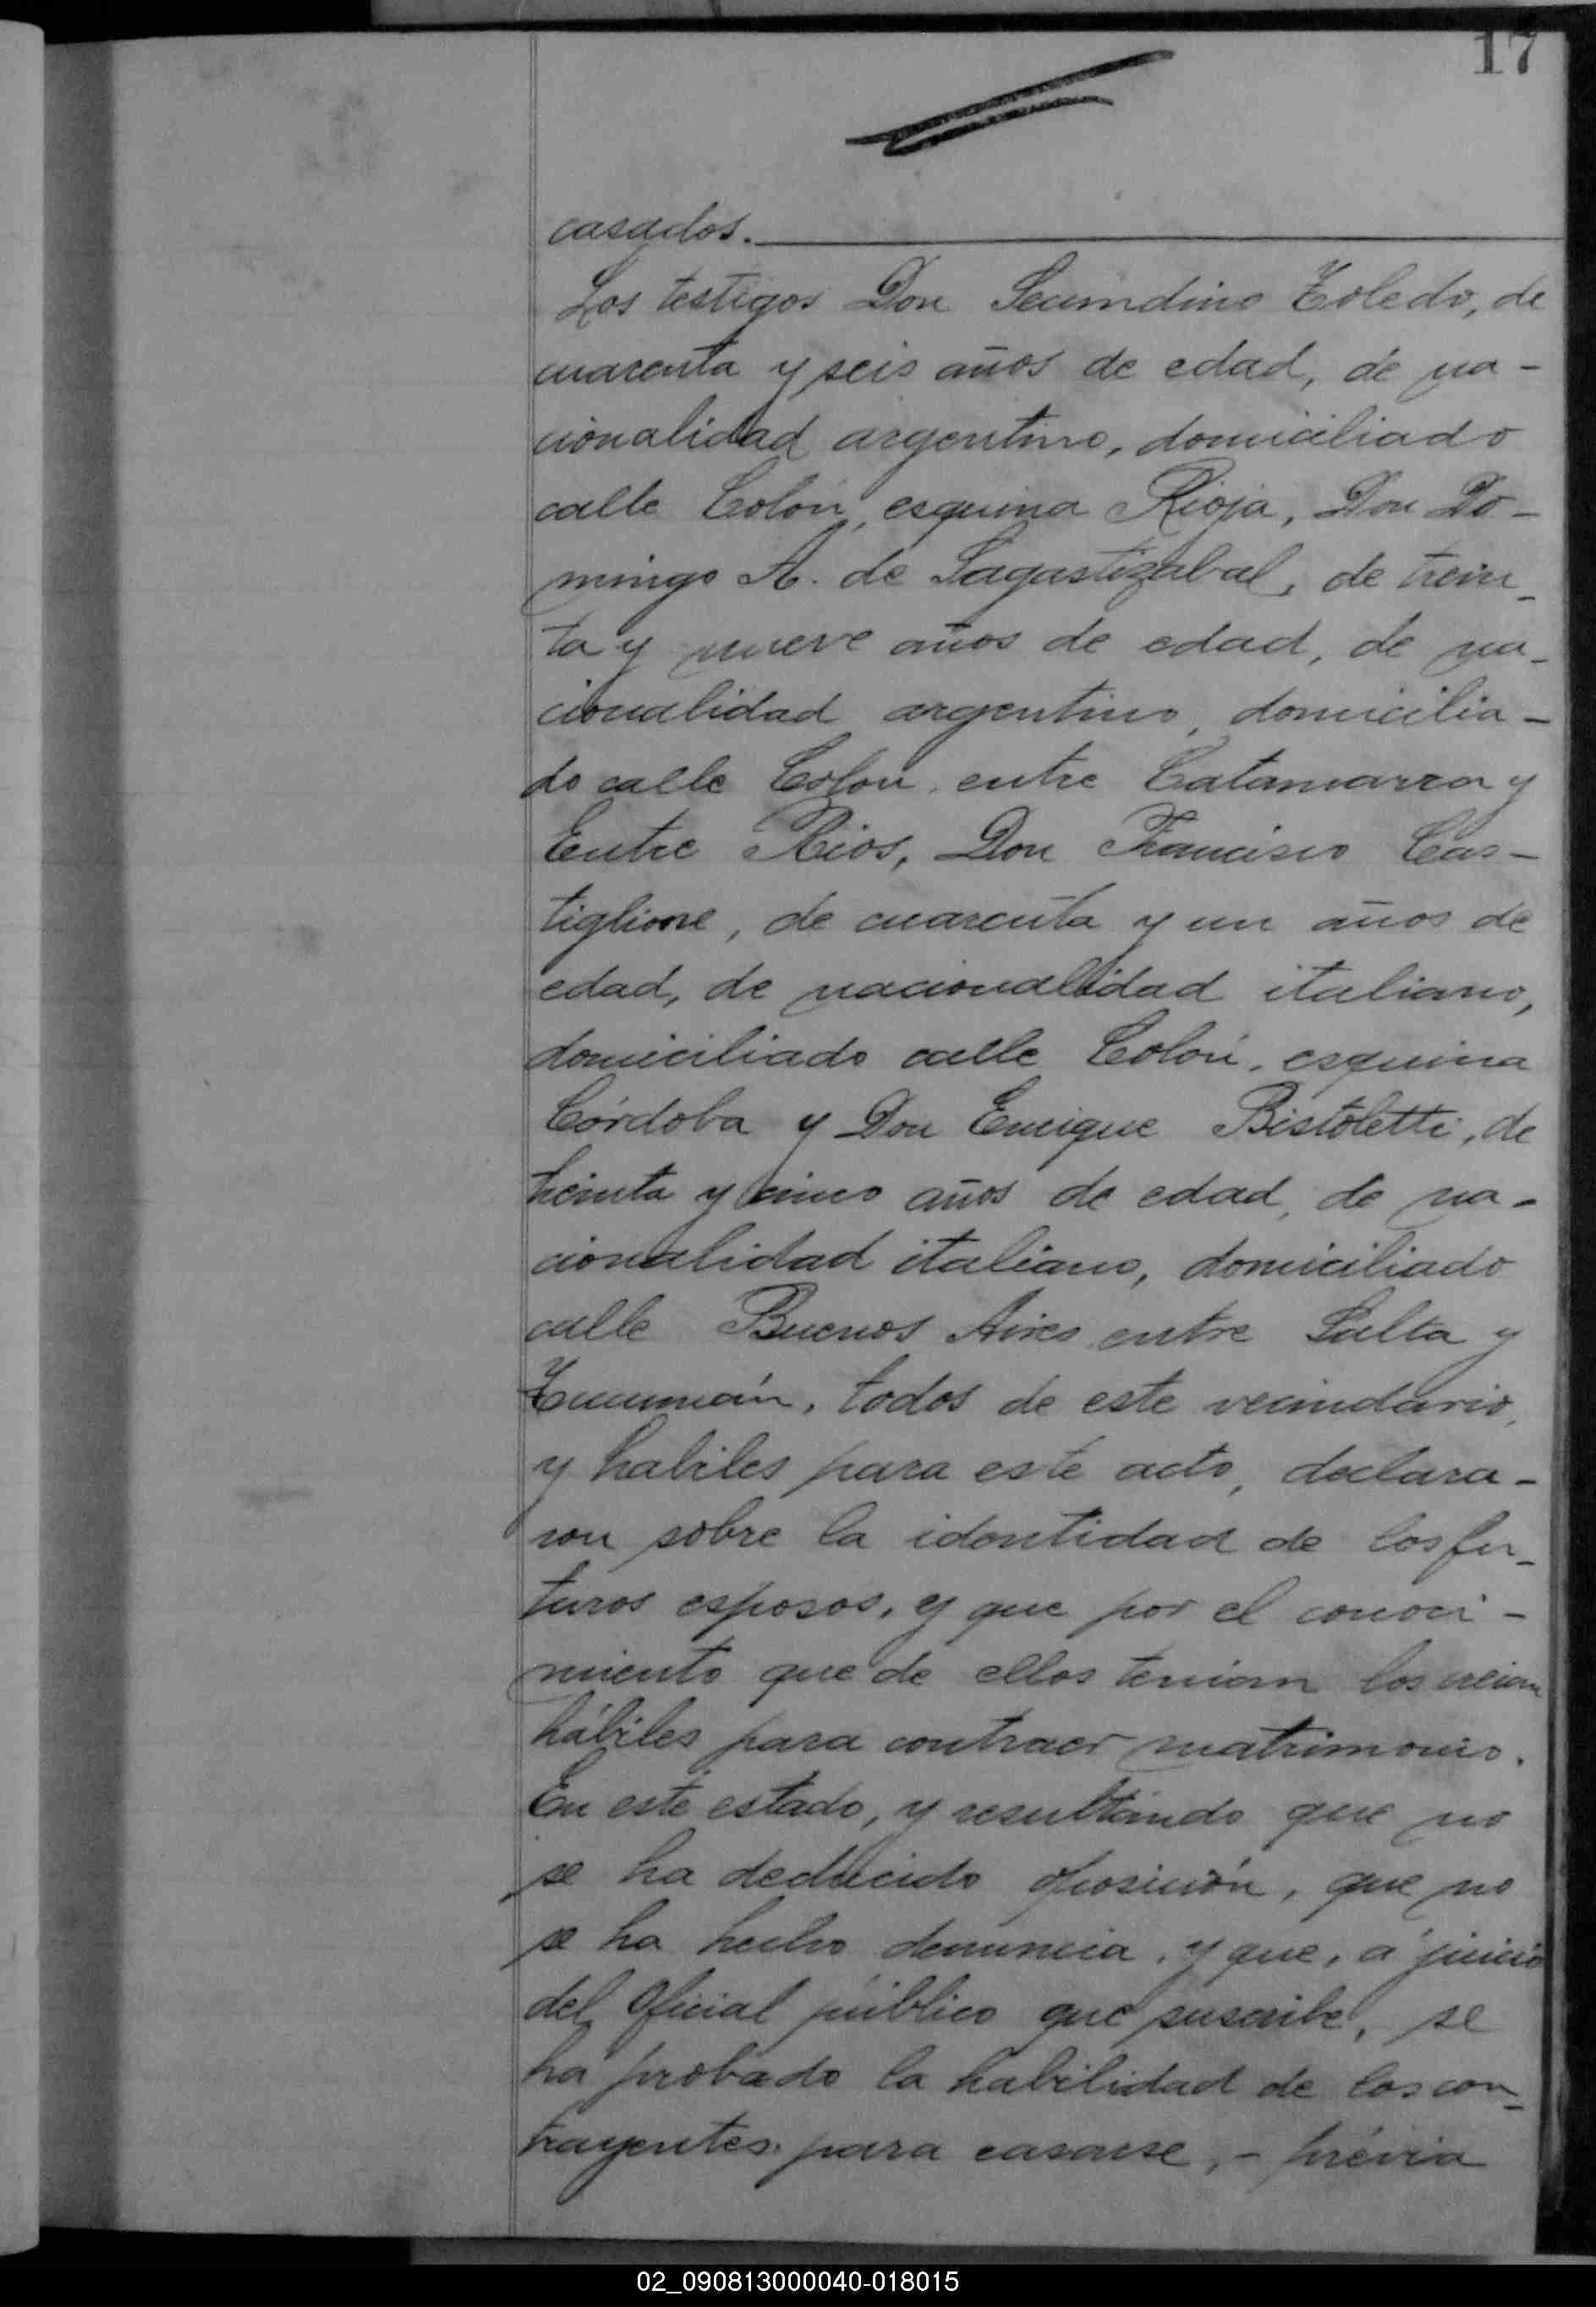 17
casados.
Los testigos Don Secundino Toledo, de
cuarenta y seis años de edad, de na-
cionalidad argentino, domiciliado
calle Colón, esquina Rioja, Don Do-
mingo A. de Sagastizabal, de trein-
ta y nueve años de edad, de na-
cionalidad argentino, domicilia-
do calle Colon, entre Catamarca y
Entre Rios, Don Francisco Cas-
tiglione, de cuarenta y un años de
edad, de nacionalidad italiano,
domiciliado calle Colón, esquina
Córdoba y Don Enrique Bistoletti, de
treinta y cinco años de edad, de na-
cionalidad italiano, domiciliado
calle Buenos Aires entre Salta y
Tucumán, todos de este vecindario,
y habiles para este acto, declara-
ron sobre la identidad de los fu-
turos esposos, y que por el conoci-
miento que de ellos tenian los creian
hábiles para contraer matrimonio.
En este estado, y resultando que no
se ha deducido oposición, que no
se ha hecho denuncia, y que, á juicio
del Oficial público que suscribe, se
ha probado la habilidad de los con-
trayentes para casarse, - prévia
02_090813000040-018015